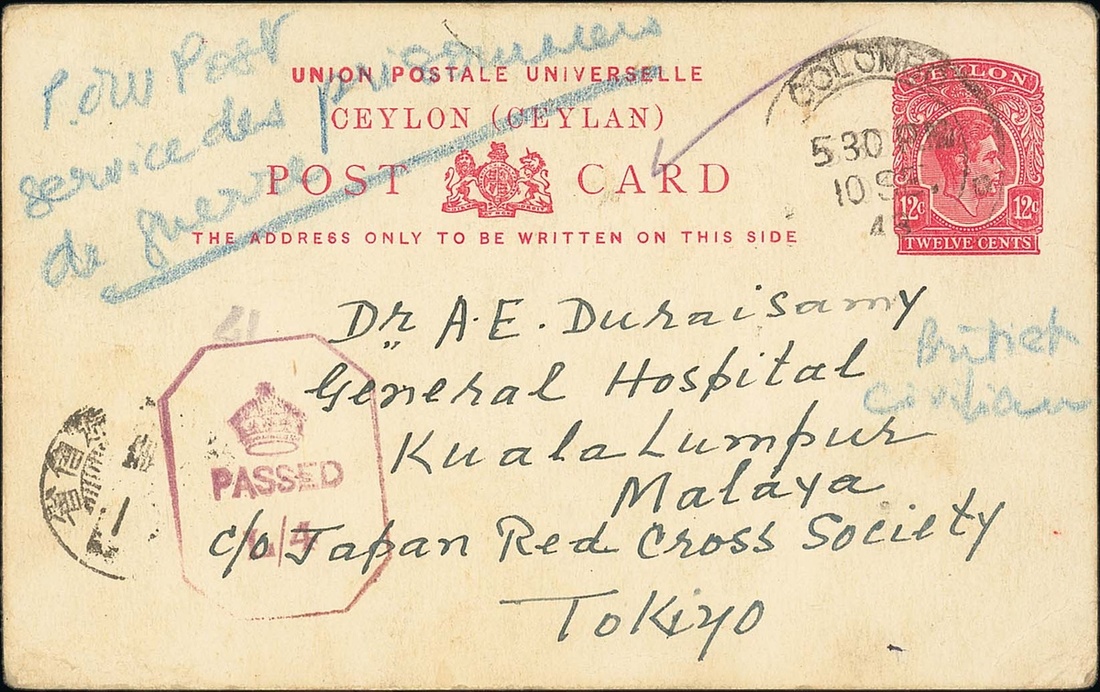 P.O.W Post
service des prisonniers
de guerre
UNION POSTALE UNIVERSELLE
CEYLON (CEYLAN)
POST CARD
THE ADDRESS ONLY TO BE WRITTEN ON THIS SIDE
COLOMBO
5 30 PM
10 SE
CEYLON
12c 12c
TWELVE CENTS
Dr A. E. Duraisamy
General Hospital
British
civilian
Kuala Lumpur
Malaya
c/o Japan Red Cross Society
Tokiyo
PASSED